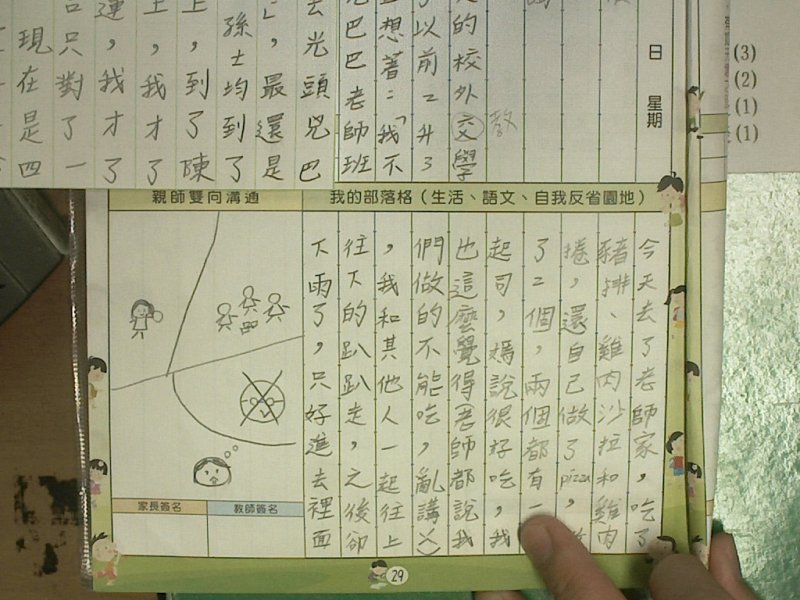 (3)
(2)
(1)
(1)
日 星期
教
的校外交學
了以前二升3
想著:「我不
巴巴老師班
去光頭兒巴
」,最還是
孫士均到了
上,到了陳
,我才了
運,我才了
只對了一
現在是四
我的部落格(生活、語文、自我反省園地)
親師雙向溝通
今天去了老師家,吃了
豬排、雞肉沙拉和雞肉
捲,還自己做了pizza,
了二個,兩個都有一
起司,媽說很好吃,我
也這麼覺得老師都說我
們做的不能吃,亂講><
,我和其他人一起往上
往下的趴趴走,之後卻
下雨了,只好進去裡面
家長簽名
教師簽名
29